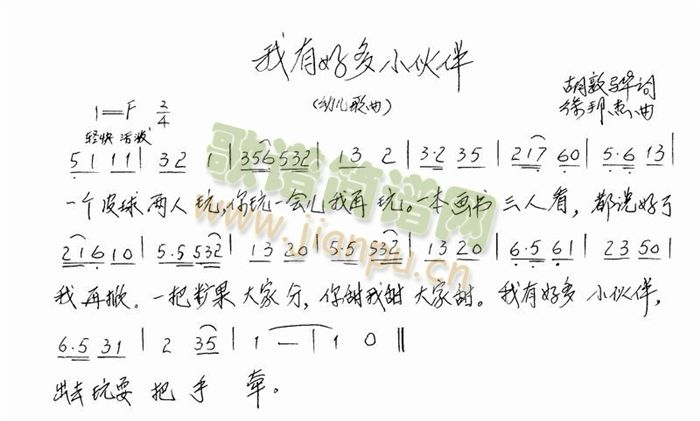 我有好多小伙伴
(幼儿歌曲)
胡敦骅词
徐邦杰曲
1=F 2/4
轻快 活泼
5 1 1 1 | 3 2 1 | 3 5 6 5 3 2 | 1 3 2 | 3·2 3 5 | 2 1 7 6 0 | 5·6 1 3 |
一个皮球两人玩,你玩一会儿我再玩。一本画书三人看,都说好了
2 1 6 1 0 | 5·5 5 3 2 | 1 3 2 0 | 5·5 5 3 2 | 1 3 2 0 | 6·5 6 1 | 2 3 5 0 |
我再掀。一把糖果大家分,你甜我甜大家甜。我有好多小伙伴,
6·5 3 1 | 2 3 5 | 1 — | 1 0 ‖
出去玩耍把手牵。
歌谱简谱网
www.jianpu.cn